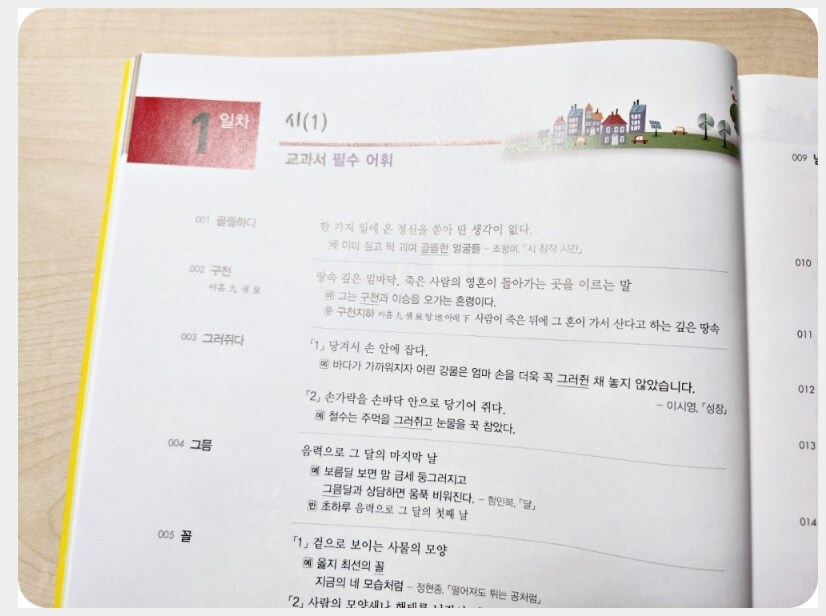 1일차
시(1)
교과서 필수 어휘
001 골똘하다
한 가지 일에 온 정신을 쏟아 딴 생각이 없다.
예 이마 짚고 턱 괴며 골똘한 얼굴들 – 조향미, 「시 창작 시간」
002 구천
아홉 九 샘 泉
땅속 깊은 밑바닥. 죽은 사람의 영혼이 돌아가는 곳을 이르는 말
예 그는 구천과 이승을 오가는 혼령이다.
유 구천지하 아홉 九 샘 泉 땅 地 아래 下 사람이 죽은 뒤에 그 혼이 가서 산다고 하는 깊은 땅속
003 그러쥐다
「1」 당겨서 손 안에 잡다.
예 바다가 가까워지자 어린 강물은 엄마 손을 더욱 꼭 그러쥔 채 놓지 않았습니다.
– 이시영, 「성장」
「2」 손가락을 손바닥 안으로 당기어 쥐다.
예 철수는 주먹을 그러쥐고 눈물을 꾹 참았다.
004 그믐
음력으로 그 달의 마지막 날
예 보름달 보면 맘 금세 둥그러지고
그믐달과 상담하면 움푹 비워진다. – 함민복, 「달」
반 초하루 음력으로 그 달의 첫째 날
005 꼴
「1」 겉으로 보이는 사물의 모양
예 옳지 최선의 꼴
지금의 네 모습처럼 – 정현종, 「떨어져도 튀는 공처럼」
「2」 사람의 모양새나
009
010
011
012
013
014